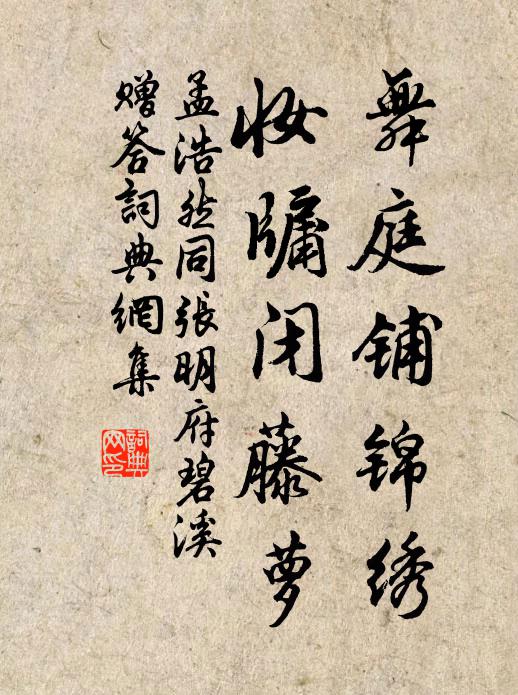 舞庭铺锦绣
妆牖闭藤萝
孟浩然同张明府碧溪
赠答詞典網集
詞典網印